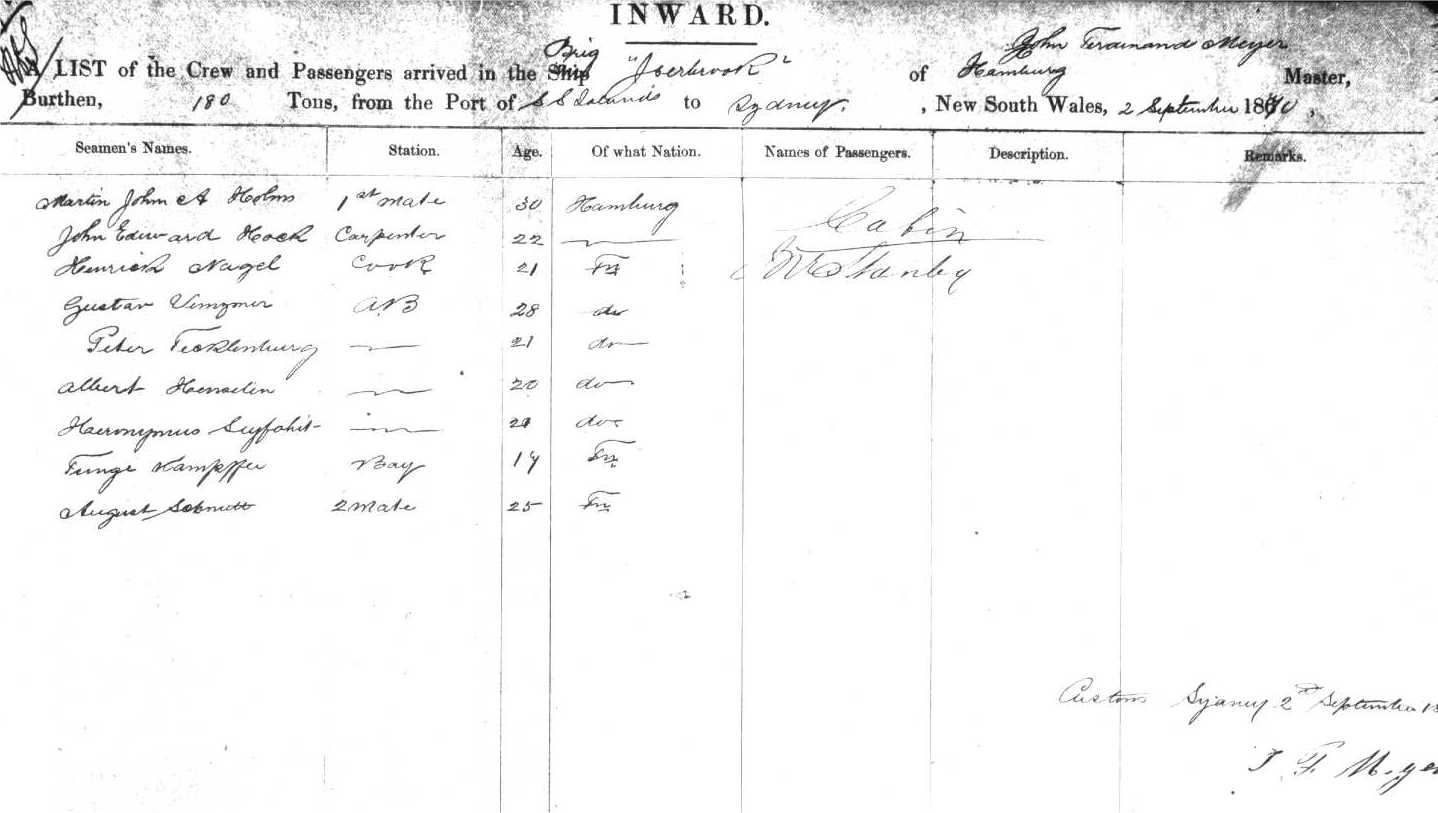 INWARD.
A LIST of the Crew and Passengers arrived in the Ship Brig "Iserbrook" of Hamburg John Ferdinand Meyer Master,
Burthen, 180 Tons, from the Port of S S Islands to Sydney. , New South Wales, 2 September 1870,
Seamen's Names. Station. Age. Of what Nation. Names of Passengers. Description. Remarks.
Martin John A Holms 1st Mate 30 Hamburg Cabin
John Edward Hock Carpenter 22
Henrick Nagel Cook 21 Mr Stanley
Gustav AB 28 do
Peter Tecklenburg 21 do
Albert 20 do
Hieronymus do
Kampffer Boy
August Schmutt 2 Mate 25
Customs Sydney 2nd September 18
J F Meyer